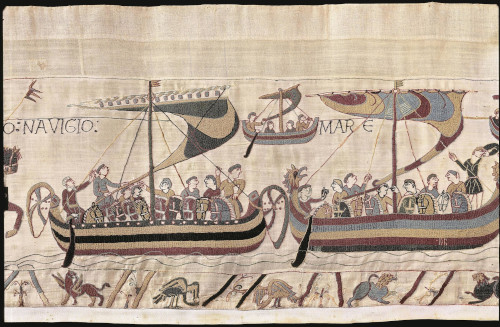 O : NAVIGIO : MARE